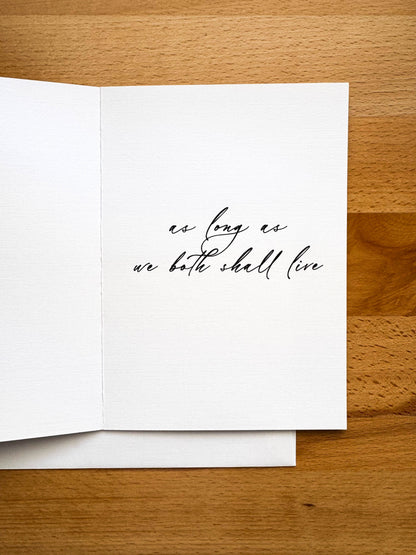 as long as
we both shall live